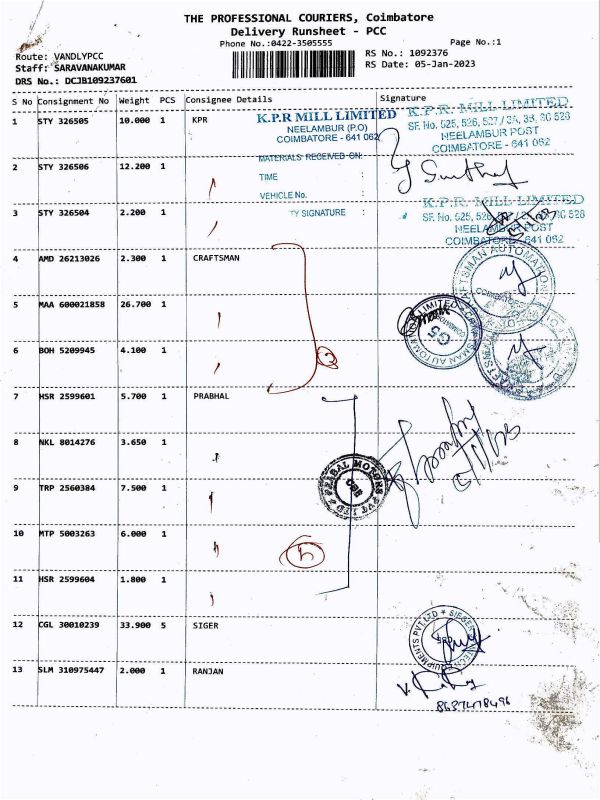 THE PROFESSIONAL COURIERS, Coimbatore
Delivery Runsheet - PCC
Phone No.:0422-3505555
Page No.:1
Route: VANDLYPCC
RS No.: 1092376
Staff: SARAVANAKUMAR
RS Date: 05-Jan-2023
DRS No.: DCJB109237601
S No Consignment No Weight PCS Consignee Details Signature
1 STY 326505 10.000 1 KPR
K.P.R MILL LIMITED
NEELAMBUR (P.O)
COIMBATORE - 641 062
K.P.R. MILL LIMITED
SF. No. 525, 526, 527 / 3A, 3B, 3C 528
NEELAMBUR POST
COIMBATORE - 641 062
MATERIALS RECEIVED ON:
2 STY 326506 12.200 1
TIME :
VEHICLE No. :
3 STY 326504 2.200 1
TY SIGNATURE :
K.P.R. MILL LIMITED
SF. No. 525, 526, 528
NEELAMBUR POST
COIMBATORE - 641 062
4 AMD 26213026 2.300 1 CRAFTSMAN
5 MAA 600021858 26.700 1
6 BOH 5209945 4.100 1
7 HSR 2599601 5.700 1 PRABHAL
8 NKL 8014276 3.650 1
9 TRP 2560384 7.500 1
PRABAL MOTORS PVT LTD
10 MTP 5003263 6.000 1
11 HSR 2599604 1.800 1
12 CGL 30010239 33.900 5 SIGER
13 SLM 310975447 2.000 1 RANJAN
8637478496